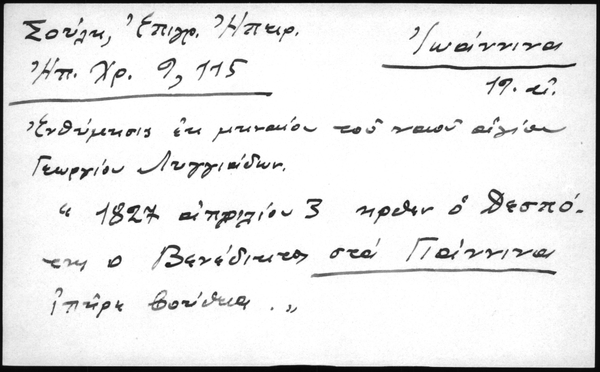 Σούλη, Ἐπιγρ. Ἠπειρ.
Ἠπ. Χρ. 9, 115
Ἰωάννινα
19. αἰ.
Ἐνθύμησις ἐκ μηναίου τοῦ ναοῦ ἁγίου
Γεωργίου Λυγγιάδων.
" 1827 ἀπριλίου 3 ηρθεν ὁ Δεσπό-
της ο Βενέδικτος στά Γιάννινα
ἰπῆρε βοήθεια . „